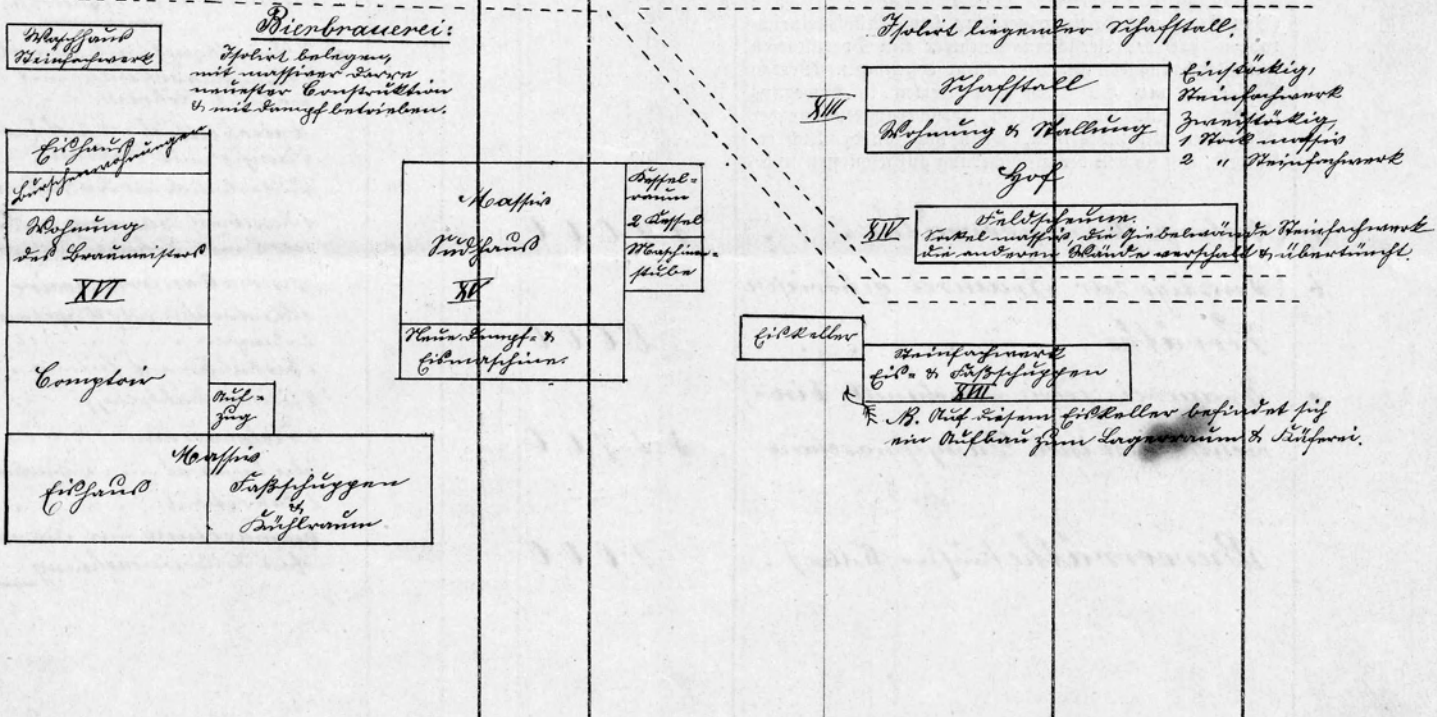 Waschhaus
Steinfachwerk
Bierbrauerei:
Isolirt belegen,
mit massiver Darre
neuester Construktion
& mit Dampf betrieben.
Eishaus
Burschenwohnungen
Wohnung
des Braumeisters
XVI
Comptoir
Auf-
zug
Massiv
Eishaus
Faßschuppen
&
Kühlraum.
Massiv
Sudhaus
XV
Kessel-
raum
2 Kessel
Maschinen-
stube
Neue Dampf- &
Eismaschine.
Isolirt liegender Schafstall.
XIII
Schafstall
Wohnung & Stallung
Einstöckig,
Steinfachwerk
Zweistöckig,
1 Stock massiv
2 " Steinfachwerk
Hof
XIV
Feldscheune.
Sockel massiv, die Giebelwände Steinfachwerk
die anderen Wände verschalt & übertüncht.
Eiskeller
Steinfachwerk
Eis- & Faßschuppen
XVII
NB. Auf diesem Eiskeller befindet sich
ein Aufbau zum Lagerraum & Küferei.